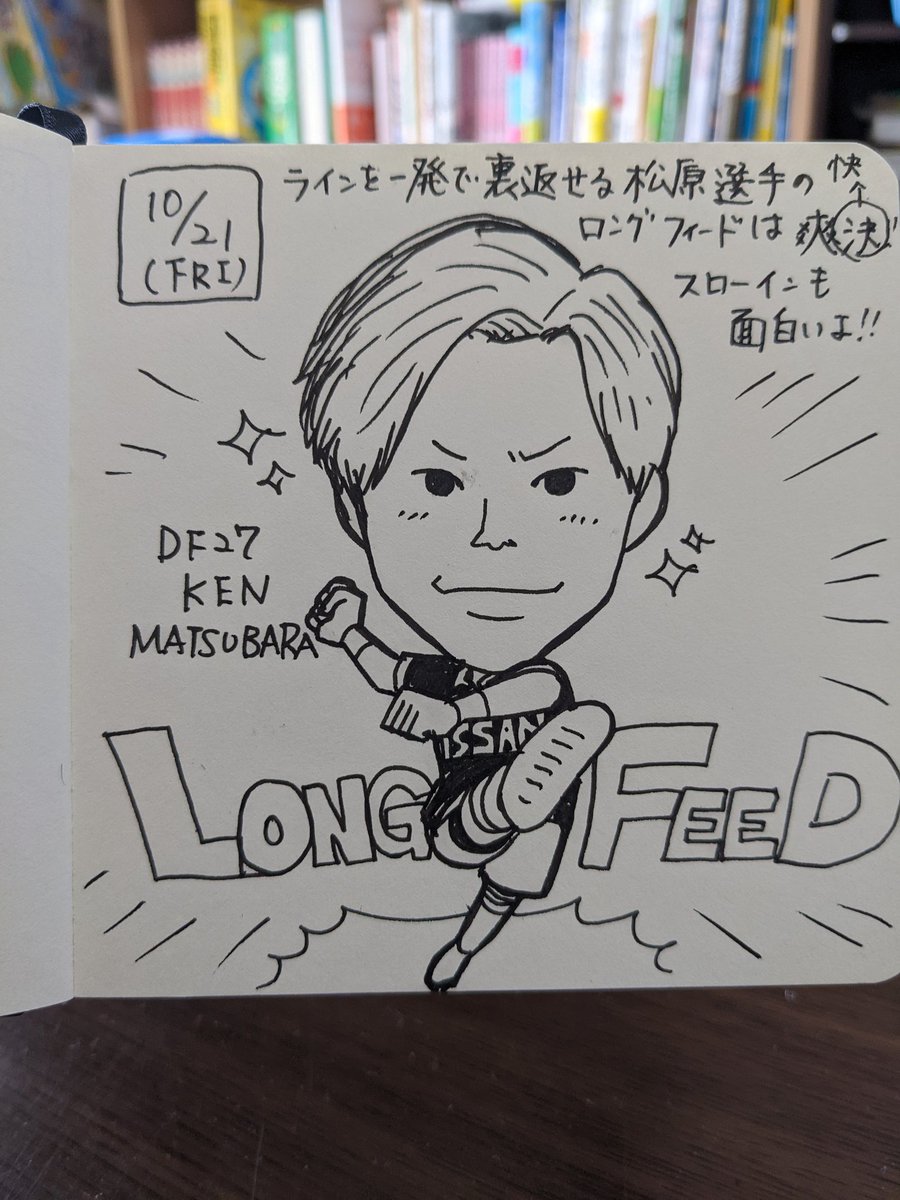 10/21
(FRI)
ラインを一発で裏返せる松原選手の
ロングフィードは爽決!
快
スローインも
面白いよ!!
DF27
KEN
MATSUBARA
ISSAN
LONG FEED